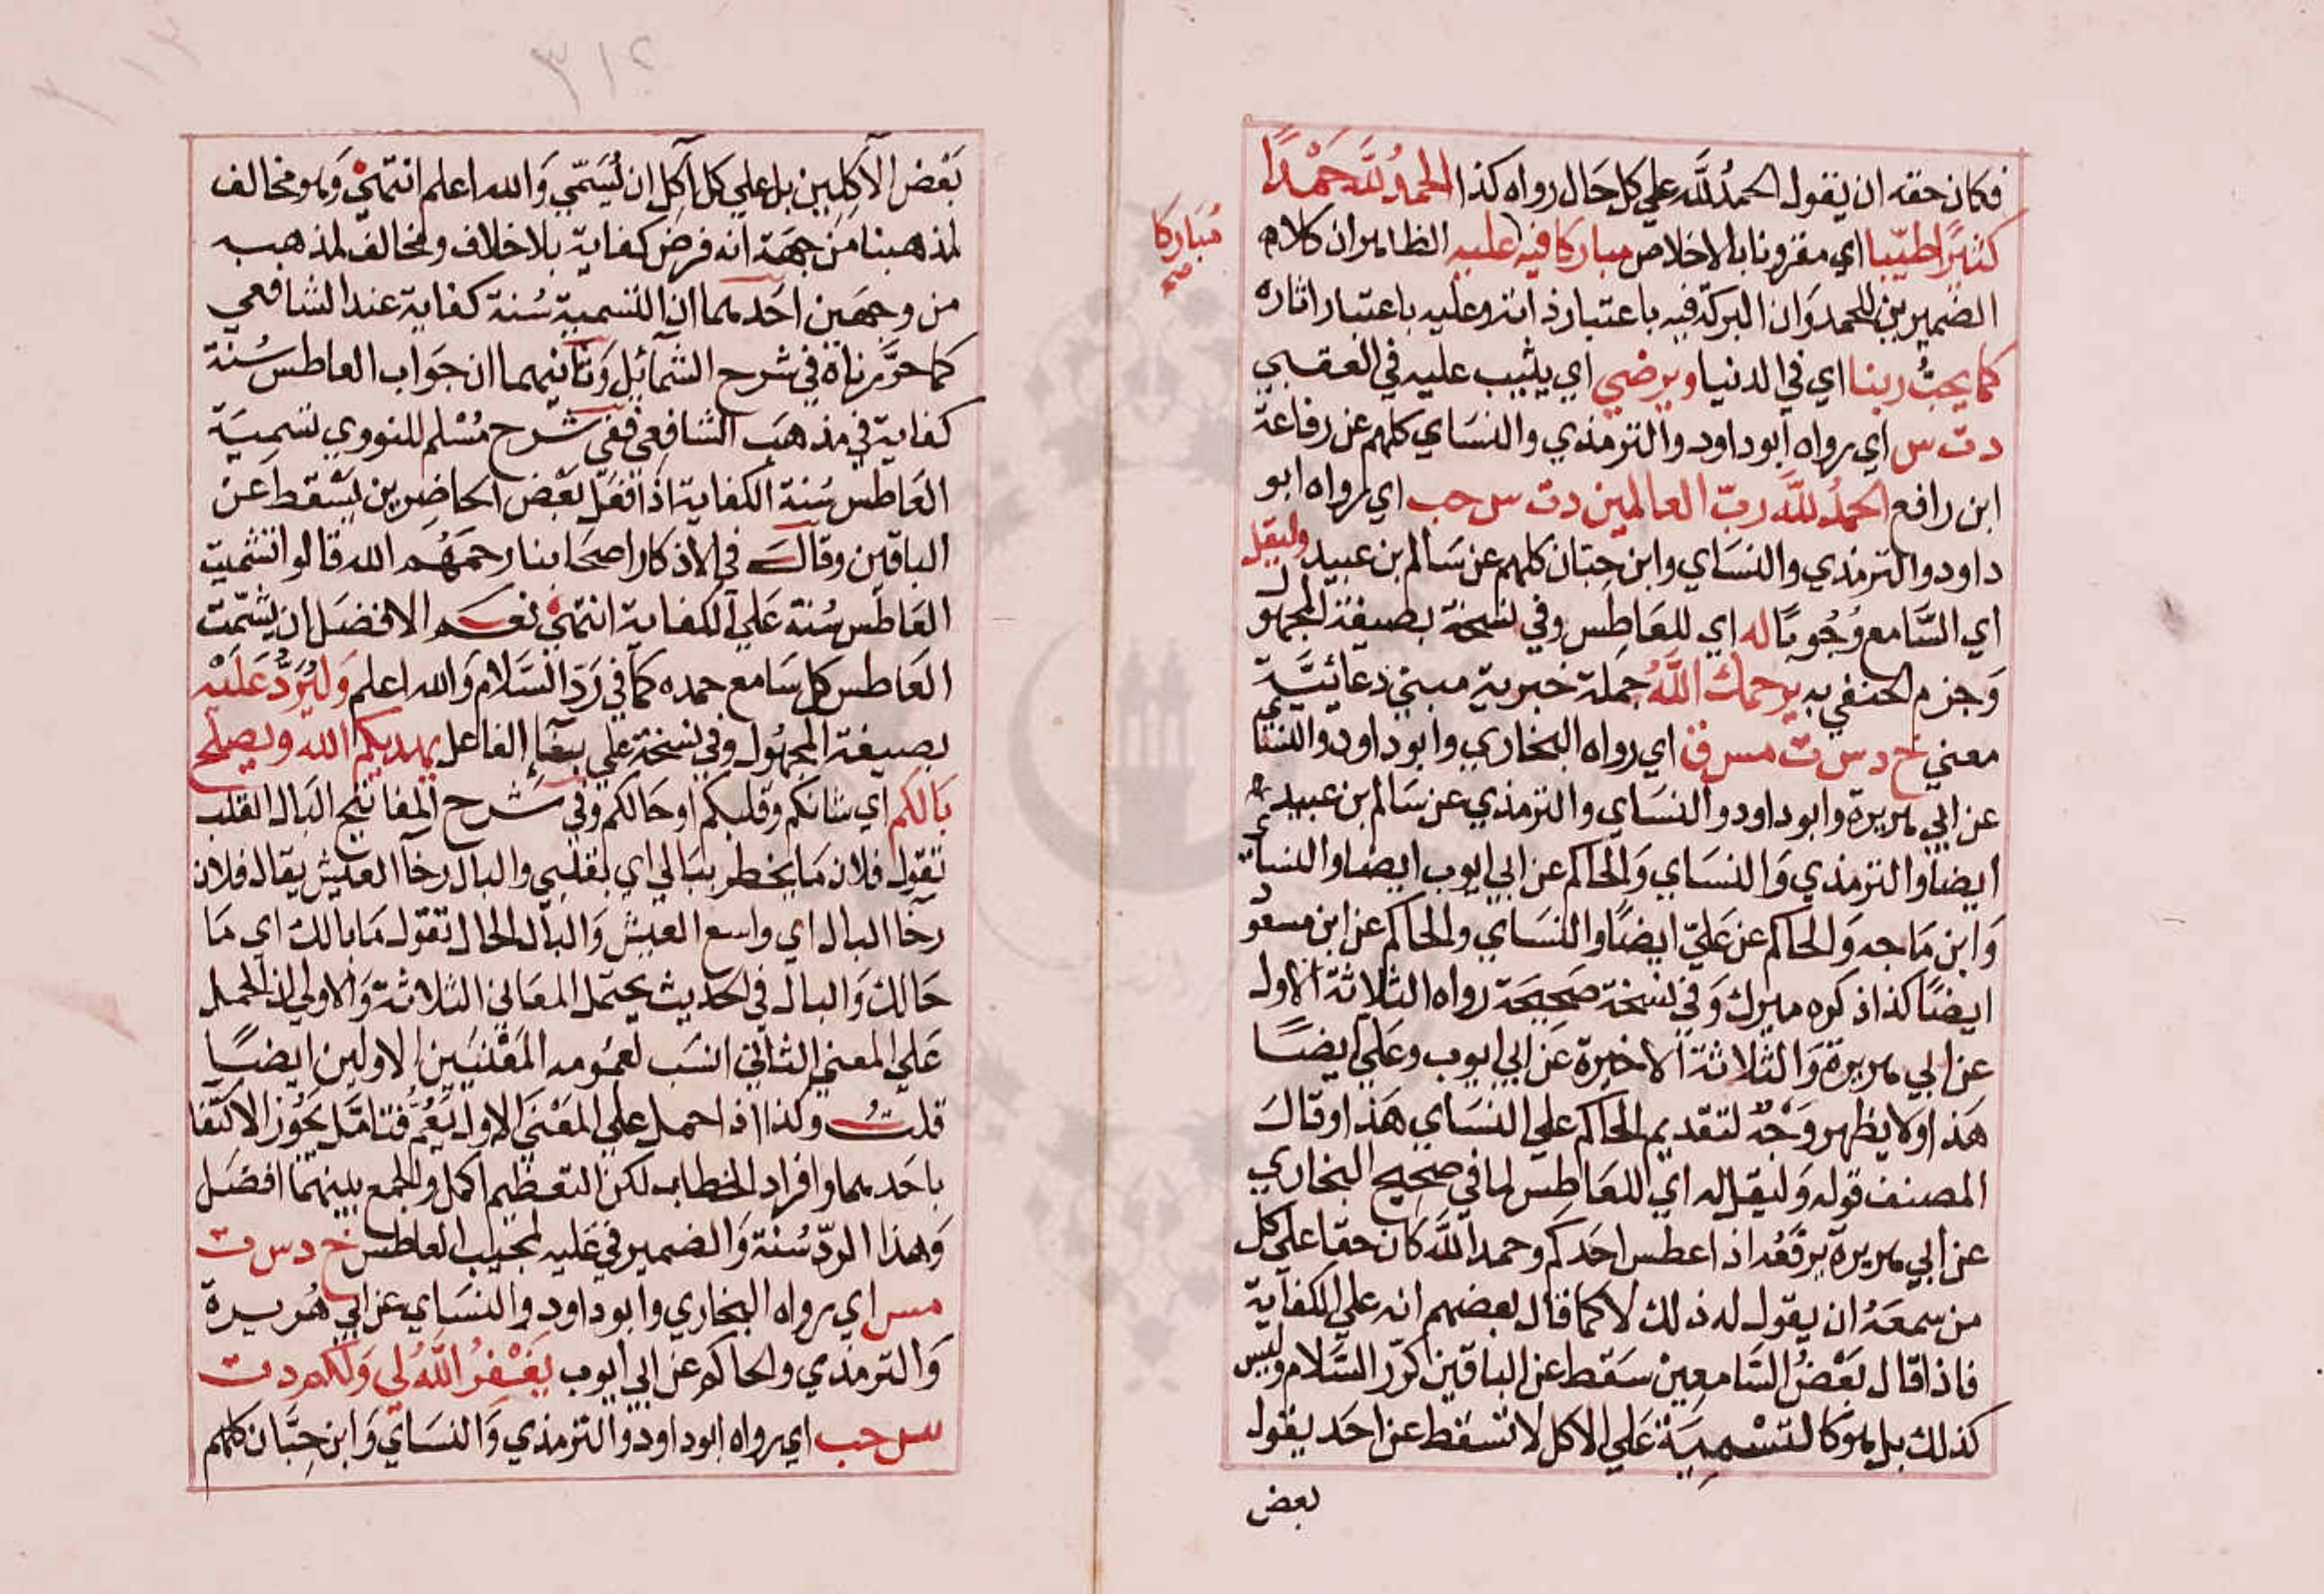 فكان حقه ان يقول الحمدُ للَّه علي كل حَال رواه كذا الحمدُ للَّه حَمْدًا
كثيرًا طيّبا اي مقرونا بالاخلاص مباركا فيه عليه الظاهر ان كلام
مُبَاركا
صح
الضميرين للحمد وَان البركة فيه باعتبار ذاته وعليه باعتبار اثاره
كما يحبُّ ربنا اي في الدنيا ويرضي اي يثيب عليه في العقبي
د ت س اي رواه ابو داود والترمذي والنسَاي كلهم عن رفاعة
ابن رافع الحمدُ للَّه ربّ العالمين د ت س حب اي رواه ابو
داود والترمذي والنسَاي وابن حبّان كلهم عن سَالم بن عبيد وليقل
اي السَّامع وُجُوبًا له اي للعَاطِس وفي نسخة بصيغة المجهول
وَجزم الحنفي به يرحمك اللَّهُ جملة خبرية مبني دعائيّة
معني خ د س ت مس ق اي رواه البخاري وابو داود والنسا
عن ابي هريرة وابو داود والنسَاي والترمذي عن سَالم بن عبيد
ايضا والترمذي وَالنسَاي وَالحاكم عن ابي ايوب ايضا والنساي
وَابن مَاجه وَالحاكم عن عَليّ ايضًا والنسَاي والحاكم عن ابن مسعود
ايضًا كذا ذكره ميرك وَفي نسخة صَحيحَة رواه الثلاثة الاول
عن ابي هريرة وَالثلاثة الاخيرة عَن ابي ايوب وعَلي ايضًا
هَذا ولا يظهر وَجْهٌ لتقديم الحاكم علي النسَاي هَذا وقالَ
المصنف قوله وَليقل له اي للعَاطِس لما في صَحِيح البخاري
عن ابي هريرة يرفَعُه اذا عطس احَدكم وحمد اللَّه كان حقا علي كل
من سمعَهُ ان يقول له ذلك لا كما قال بعضهم انه علي الكفاية
فاذا قال بَعْضُ السَّامعِين سَقط عن الباقين كرّد السَّلام وليس
كذلك بل هو كالتسْميَة عَلي الاكل لا تسقط عن احَد بقول
بعض
٣١٢
بَعْض الآكِلِين بل علي كل آكِل ان يُسَمّي وَالله اعلم انتهيْ وَهو مخالف
لمذهبنا من جهَة انه فرض كفاية بلا خلاف ومخالف لمذهبه
من وجهَين احَدهما ان التسمية سُنة كفاية عند الشافعي
كما حرَّرناه في شرح الشمائل وَثانيهما ان جوَاب العاطس سُنة
كفاية في مذهَب الشافعي ففي شرح مُسْلم للنووي تسميَة
العَاطس سُنة الكفاية اذا فعَل بَعْض الحاضِرين يَسْقط عَن
الباقين وقالَ في الاذكار اصحَابنا رحمَهُم الله قالوا تشميت
العَاطس سُنة عَلي الكفاية انتهي نعَم الافضَل ان يشَمّت
العَاطس كل سَامع حمده كما في رَدّ السَّلام وَالله اعلم وَليُرَدُّ عَلَيْه
بصيغة المجهُول وفي نسخة علي بنَاء الفاعل يهديكم الله ويصلح
بَالكم اي شانكم وقلبكم اوحَالكم وفي شرح المفاتيح البَال القلب
تقول فلان مَا يخطر ببَالي اي بقلبي والبال رخآ العيش يقال فلان
رخا البال اي واسع العيش وَالبَال الحال تقول مَا بالك اي مَا
حَالك وَالبال في الحَديث يحتمل المعَاني الثلاثة وَالاولي ان الحمل
عَلي المعني الثاني انسَب لعمُومه المعْنيَين الاولين ايضًا
قلتُ وكذا اذا حمل علي المعْنَي الاول يَعُمّ فتامّل يَجُوز الاكتفا
باحَدهما وافراد الخطاب لكن التعظيم اكمل والجمع بينهمَا افضَل
وَهذا الردّ سُنة وَالضمير في عَليه لمجيب العَاطس خ د س ت
مس اي رواه البخاري وابو داود والنسَاي عن ابي هُريرة
وَالترمذي والحاكم عن ابي ايوب يَغفِرُ اللَّهُ لي وَلكم د ت
س حب اي رواه ابو داود والترمذي وَالنسَاي وَابن حِبَّان كلهم